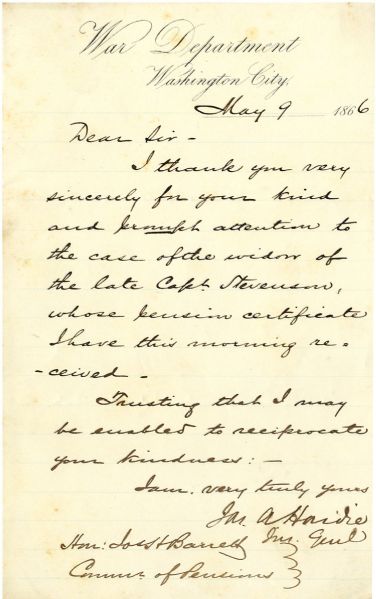 War Department
Washington City,
May 9 1866
Dear Sir -
I thank you very
sincerely for your kind
and prompt attention to
the case of the widow of
the late Capt. Stevenson,
whose pension certificate
I have this morning re-
-ceived -
Trusting that I may
be enabled to reciprocate
your kindness: -
I am. very truly yours
Jas. A Hardie
Hon: Jos H Barrett Ins. Genl
Commr. of Pensions